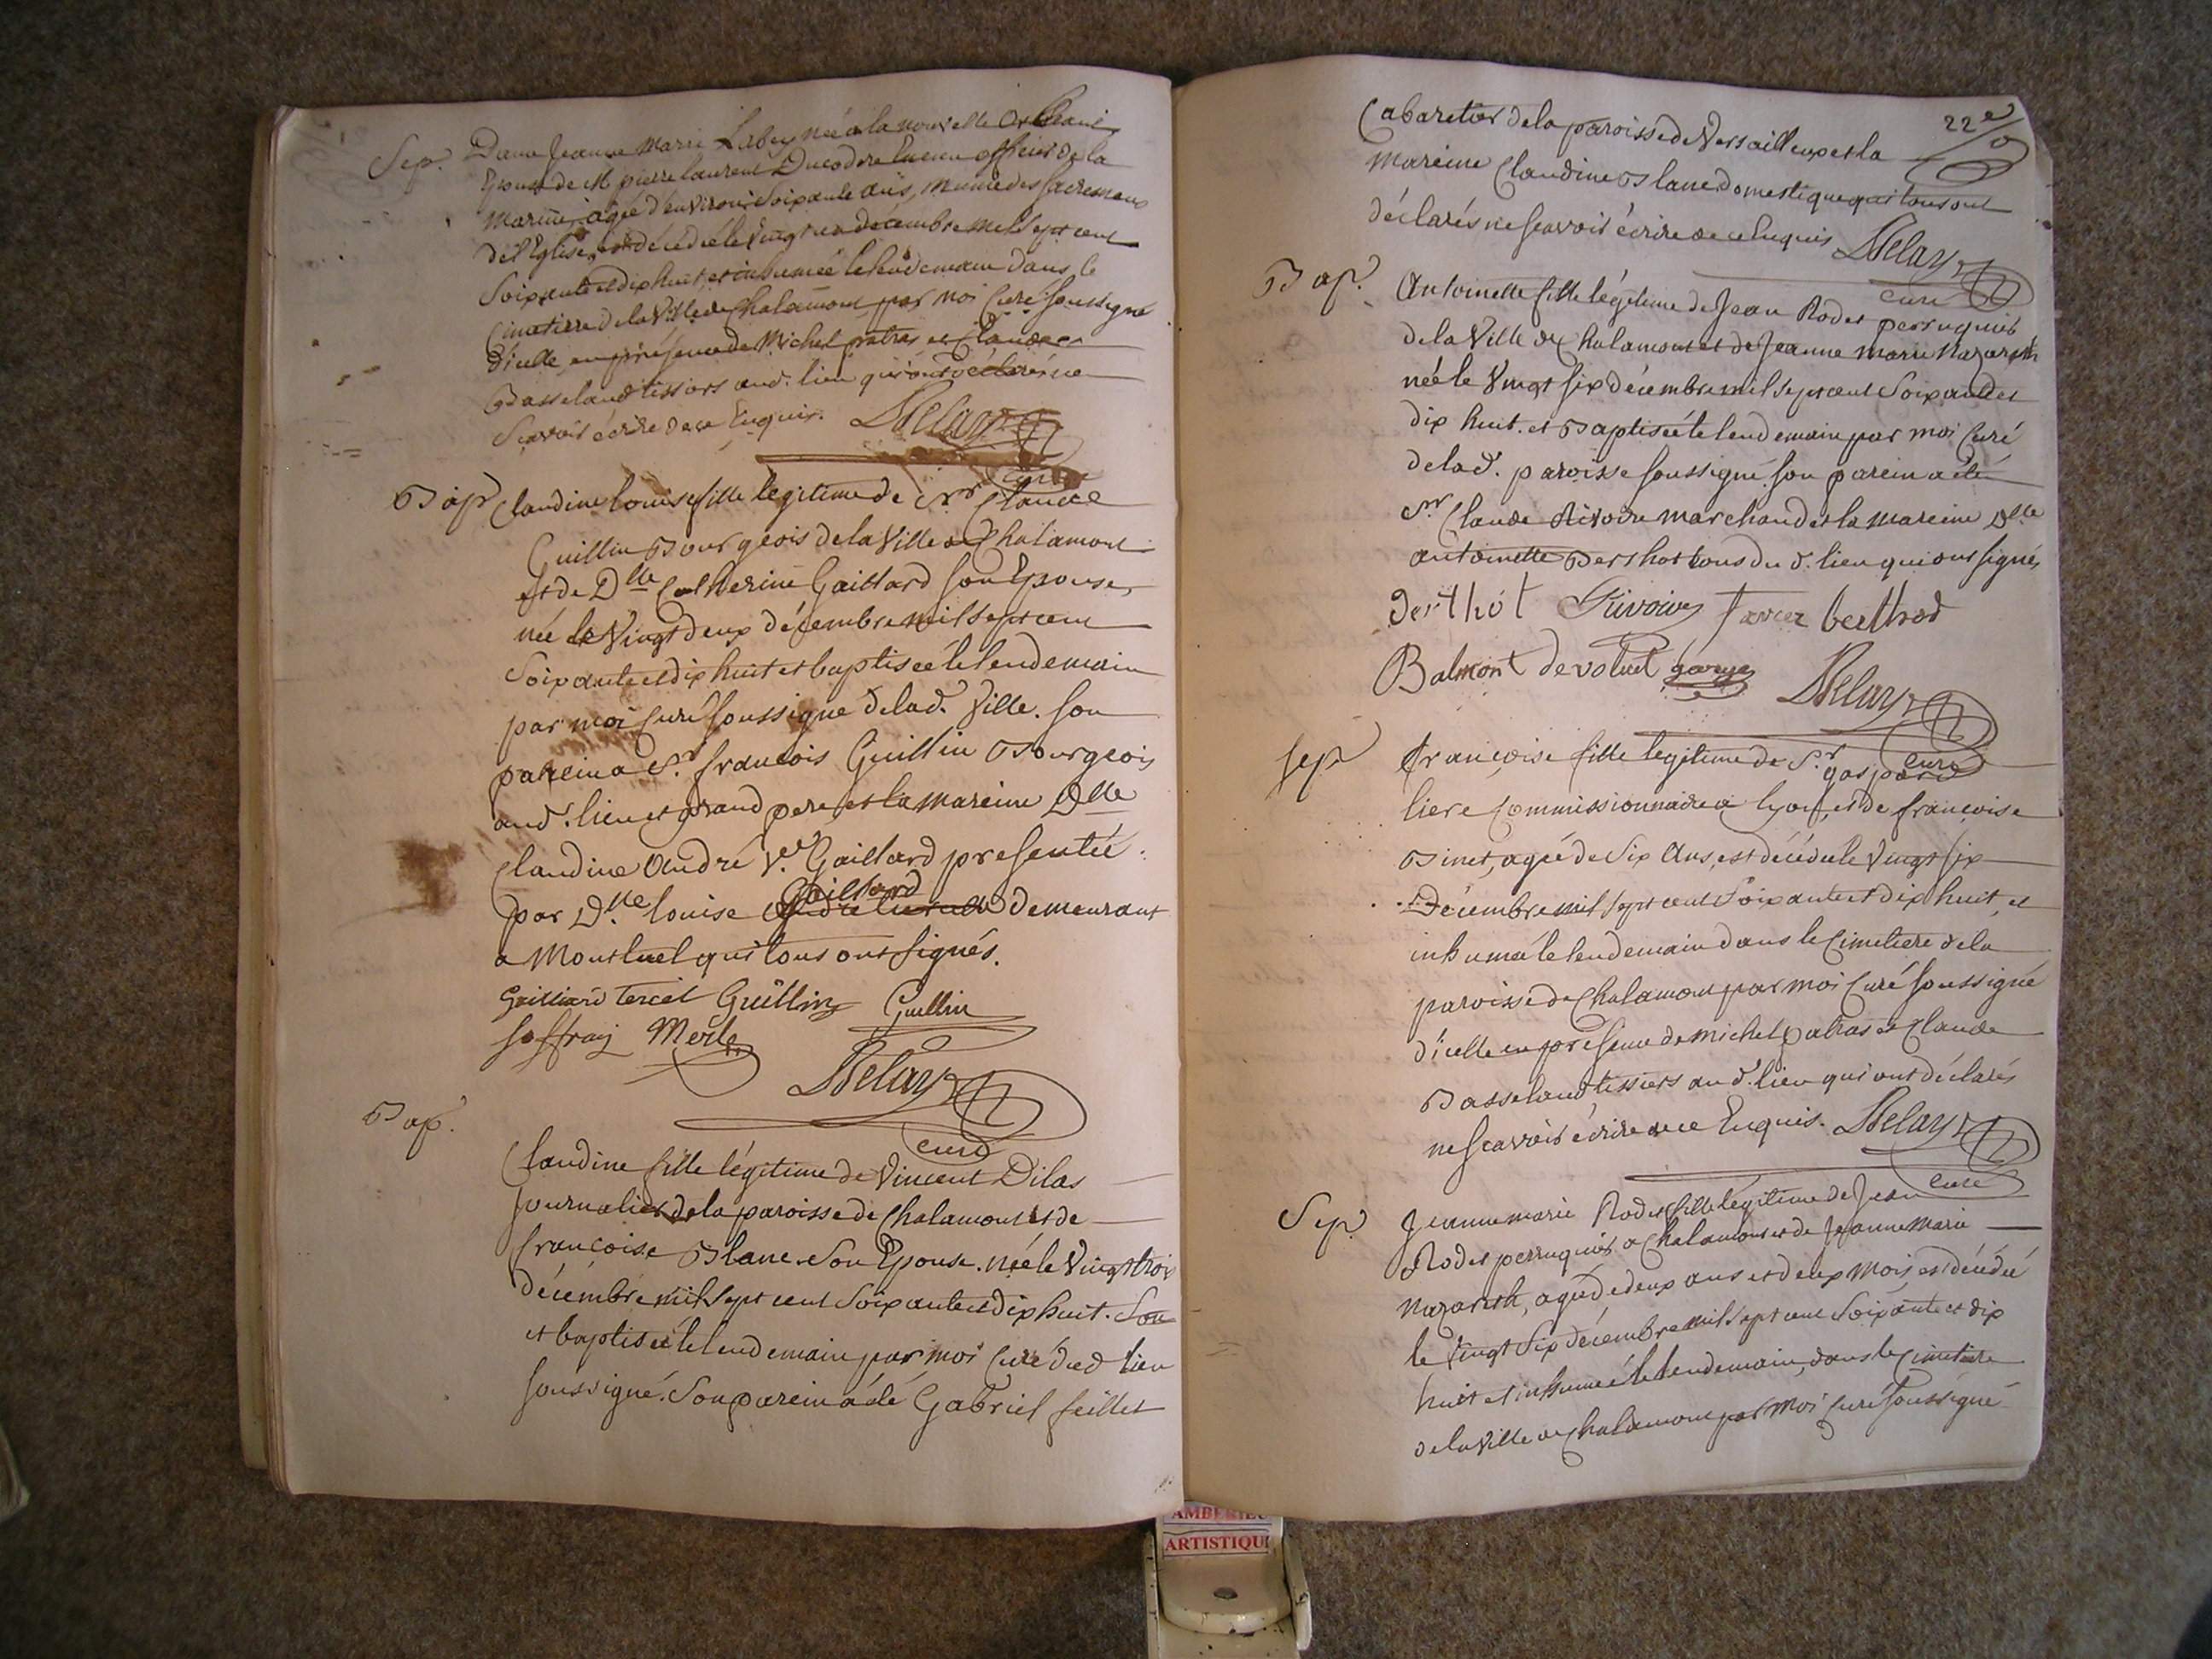 Sep. Dame Jeanne Marie Labey née a la nouvelle Orleans
Epouse de M. pierre laurent officier de la
Marine, agée d'environ Soixante ans, munie des sacremens
de l'Eglise, est décédée le vingt un decembre mil sept cent
Soixante et dix huit, et inhumée le lendemain dans le
Cimetiere de la Ville de Chalamont par moi Curé soussigné
d'icelle, en présence de Michel patras et Claude
Basseland tissiers aud. lieu qui ont déclaré ne
Scavoir écrire de ce Enquis. Delay
curé
Bap Claudine louise fille légitime de Sr. Claude
Guillin Bourgeois de la Ville de Chalamont
et de Dlle Catherine Gaillard son Epouse,
née le Vingt deux décembre mil sept cent
Soixante et dix huit et baptisée le lendemain
par moi Curé soussigné de lad. Ville. son
parein a Sr. françois Guillin Bourgeois
aud. lieu et grand pere et la mareine Dlle
Claudine André Ve. Gaillard presentée
Gaillard
par Dlle louise demeurant
a Montluel qui tous ont signés.
Gailliard tercet Guillin Guillin
Joffray Merle
Delay
curé
Bap.
Claudine fille légitime de Vincent Dilas
Journalier de la paroisse de Chalamont et de
françoise Blanc son Epouse. née le Vingt trois
décembre mil sept cent Soixante et dix huit. Son
et baptisée le lendemain par moi Curé dud lieu
soussigné. Son parein a été Gabriel feillet
22e
Cabaretier de la paroisse de Versailleux et la
mareine Claudine Blanc domestique qui tous ont
déclarés ne scavoir écrire de ce Enquis Delay
curé
Bap. Antoinette fille légitime de Jean Rodet perruquier
de la Ville de Chalamont et de Jeanne Marie Nazareth
née le Vingt six décembre mil sept cent Soixante et
dix huit. et Baptisée le lendemain par moi Curé
de lad. paroisse soussigné. son parein a été
Sr. Claude Rivoire marchand et la mareine Dlle
antoinette Berthot tous du d. lieu qui ont signés
berthot Rivoire tercet berthod
Balmont Delay
curé
Sep françoise fille légitime de Sr. gaspard
liere Commissionnaire a lyon, et de françoise
Binet, agée de Six Ans, est décédée le Vingt six
Décembre mil sept cent Soixante et dix huit, et
inhumée le lendemain dans le Cimetiere de la
paroisse de Chalamont par moi Curé soussigné
d'icelle en présence de michel patras et Claude
Basseland tissiers au d. lieu qui ont déclarés
ne Scavoir écrire de ce Enquis. Delay
curé
Sep Jeanne marie Rodet fille légitime de Jean
Rodet perruquier a Chalamont et de Jeanne Marie
Nazareth, agée de deux ans et deux mois, est décédée
le Vingt Six décembre mil sept cent Soixante et dix
huit et inhumée le lendemain, dans le Cimetiere
de la Ville de Chalamont par moi Curé soussigné
AMBERIEU
ARTISTIQU